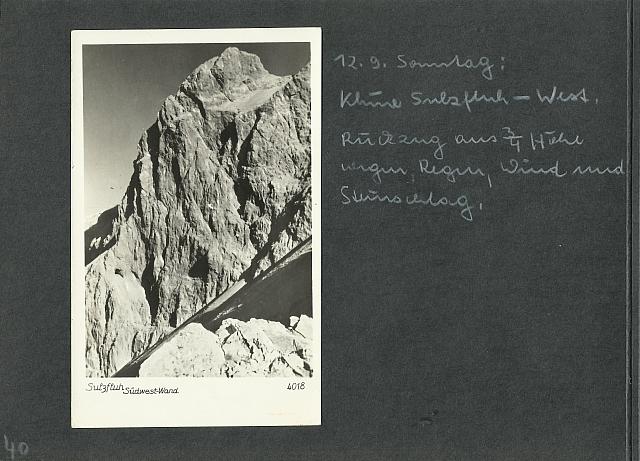 12.9. Sonntag:
Kleine Sulzfluh – West.
Rückzug aus 3/4 Höhe
wegen, Regen, Wind und
Steinschlag.
Sulzfluh Südwest-Wand. 4018
40